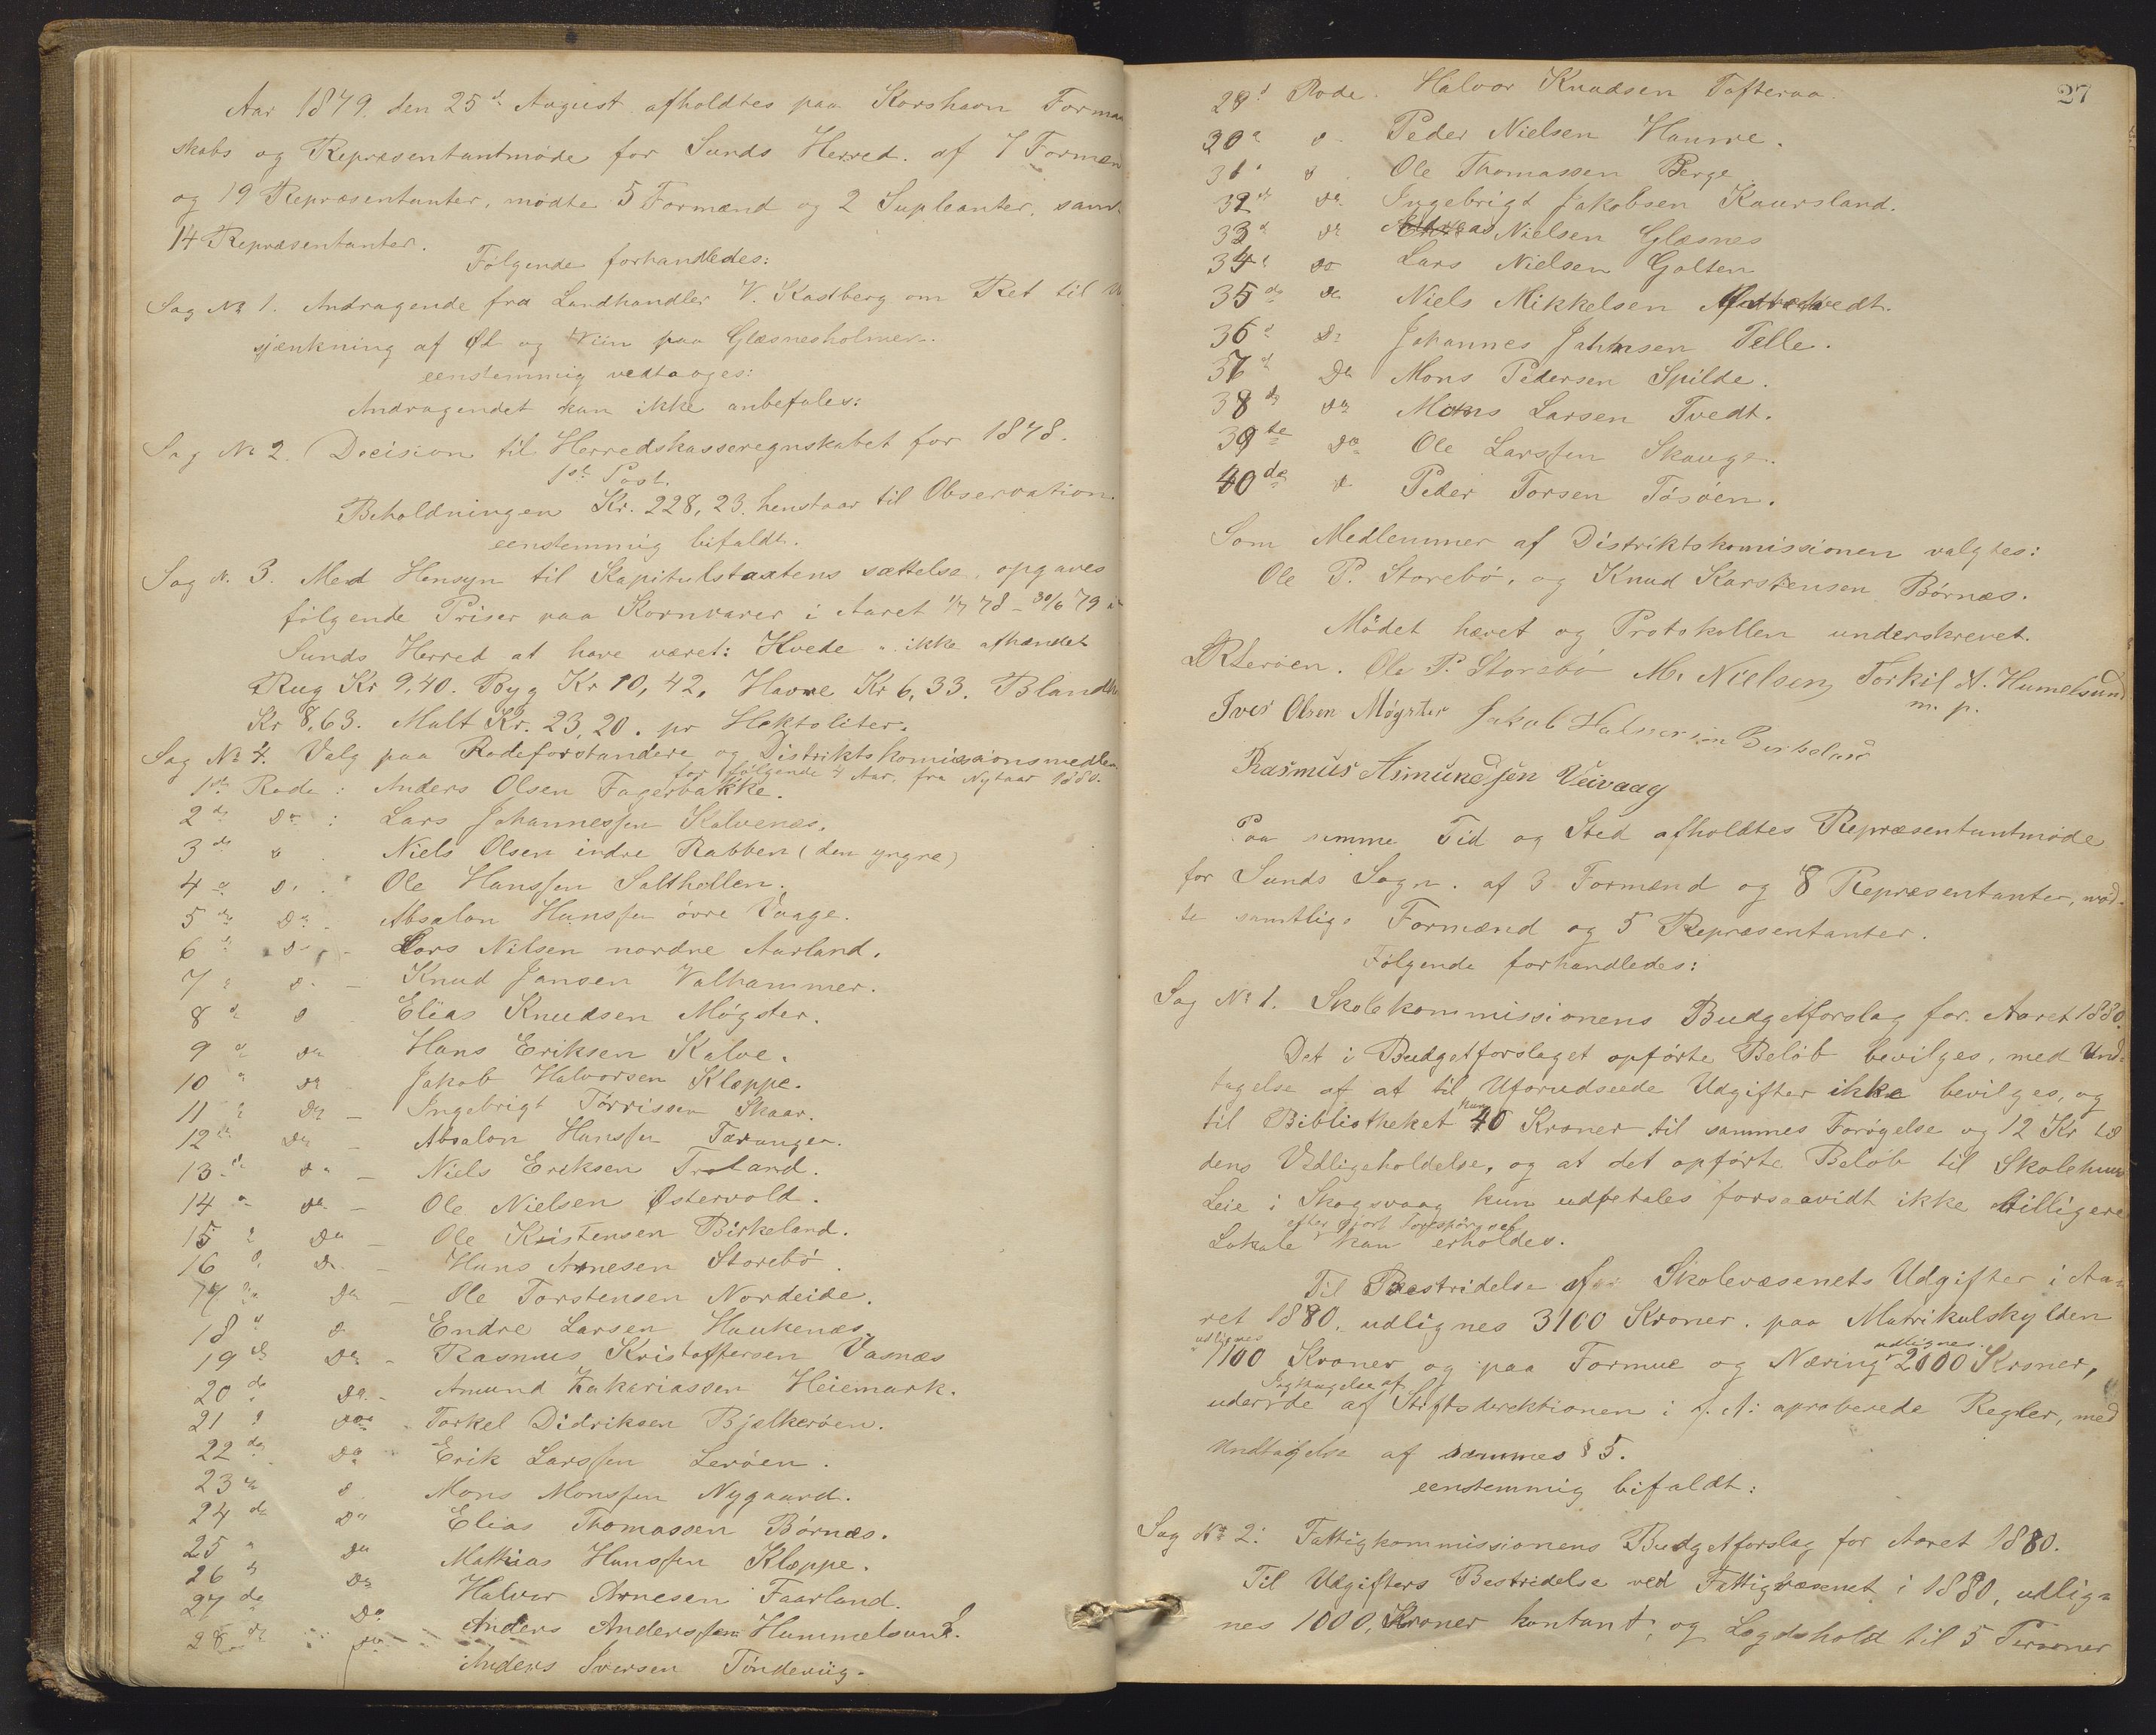 Aar 1879, den 25de August afholdtes paa Korshavn Forman
skabs og Repræsentantmøde for Sunds Herred. af 7 Formæn
og 19 Repræsentanter, mødte 5 Formænd og 2 Supleanter, samt
14 Repræsentanter.
Følgende forhandledes:
Sag No 1. Andragende fra Landhandler V. Kastberg om Ret til U
sjænkning af Øl og Viin paa Glæsnesholmen.
eenstemmig vedtoges:
Andragendet kan ikke anbefales:
Sag No 2. Decision til Herredskasseregnskabet for 1878.
1ste Post.
Beholdningen Kr. 228,23. henstaar til Observation.
eenstemmig bifaldt.
Sag N. 3. Med Hensyn til Kapitulstaxtens sættelse, opgaves
følgende Priser paa Kornvarer i Aaret 1/7 78 - 30/6 79 i
Sunds Herred at have været: Hvede " ikke afhændet
Rug Kr 9,40. Byg Kr 10,42, Havre Kr 6,33. Bland
Kr 8,63. Malt Kr. 23,20. pr Hektoliter.
Sag No 4. Valg paa Rodeforstandere og Distriktskomissionsmedlem
for følgende 4 Aar, fra Nytaar 1880.
1ste Rode: Anders Olsen Fagerbakke.
2de Do: Lars Johannessen Kalvenæs.
3de D Niels Olsen indre Rabben (den yngre)
4d D. Ole Hanssen Salthellen.
5de Do. Absalon Hanssen øvre Vaage.
6d D - Lars Nilsen nordre Aarland.
7d D. - Knud Jansen Valhammer.
8d D Elias Knudsen Møgster.
9d Do Hans Eriksen Kalve.
10d Do Jakob Halvorsen Kleppe.
11d Do - Ingebrigt Tørrissen Skaar.
12te Do - Absalon Hanssen Tæranger.
13d Do - Niels Eriksen Troland.
14d Do - Ole Nielsen Østervold.
15d Do - Ole Kristensen Birkeland.
16d D. - Hans Arnesen Storebø.
17de Do - Ole Torstensen Nordeide.
18d D Endre Larsen Haukenæs.
19de Do - Rasmus Kristoffersen Vasnæs
20de Do. - Amund Zakariassen Heiemark.
21d Do - Torkel Didriksen Bjelkerøen.
22de Do - Erik Larssen Lerøen.
23de D Mons Monssen Nygaard.
24de Do Elias Thomassen Børnæs.
25d Do Mathias Hanssen Kleppe.
26d Do Halvor Arnesen Faarland.
27de Do Anders Anderssen Hummelsund.
28de Do Anders Iversen Tøndeviig.
27
29d Rode. Halvor Knudsen Tofteraa.
30d D. Peder Nielsen Haume.
31d D. Ole Thomassen Berge
32d Do. Ingebrigt Jakobsen Kaursland.
33d Do Nielsen Glæsnes
34d Do Lars Nielsen Golten
35de Do Niels Mikkelsen
36d Do Johannes Johnsen Telle.
37d Do Mons Pedersen Spilde.
38de Do Mons Larsen Tvedt.
39te Do Ole Larssen Skauge.
40de D Peder Torsen Tøsøen.
Som Medlemmer af Distriktskomissionen valgtes:
Ole P. Storebø, og Knud Karstensen Børnæs.
Mødet hævet og Protokollen underskrevet.
Lerøen. Ole P. Storebø M. Nielsen Torkil N. Humelsund
m. p.
Iver Olsen Møgster Jakob Halvorsen Birkeland
Rasmus Asmundsen Veivaag
Paa samme Tid og Sted afholdtes Repræsentantmøde
for Sunds Sogn. af 3 Formænd og 8 Repræsentanter, mød-
te samtlige Formænd og 5 Repræsentanter.
Følgende forhandledes:
Sag No 1. Skolekommissionens Budgetforslag for Aaret 1880.
Det i Budgetforslaget opførte Beløb bevilges, med Und-
tagelse af at til Uforudseede Udgifter ikke bevilges, og
til Bibliotheket kun 40 Kroner til sammes Forøgelse og 12 Kr til
dens Vedligeholdelse, og at det opførte Beløb til Skolehuus
Leie i Skogsvaag kun udbetales forsaavidt ikke billigere
efter gjort Forespørgsel
Lokale kan erholdes.
Til Bestridelse af Skolevæsenets Udgifter i Aa-
ret 1880, udlignes 3100 Kroner. paa Matrikulskylden
udlignes udlignes.
1100 Kroner og paa Formue og Næring 2000 Kroner,
Iagttagelse af
under de af Stiftsdirektionen i f. A. aproberede Regler, med
Undtagelse af sammes § 5.
eenstemmig bifaldt:
Sag No 2. Fattigkommissionens Budgetforslag for Aaret 1880.
Til Udgifters Bestridelse ved Fattigvæsenet i 1880, udlig-
nes 1000, Kroner kontant, og Lægdshold til 5 Personer